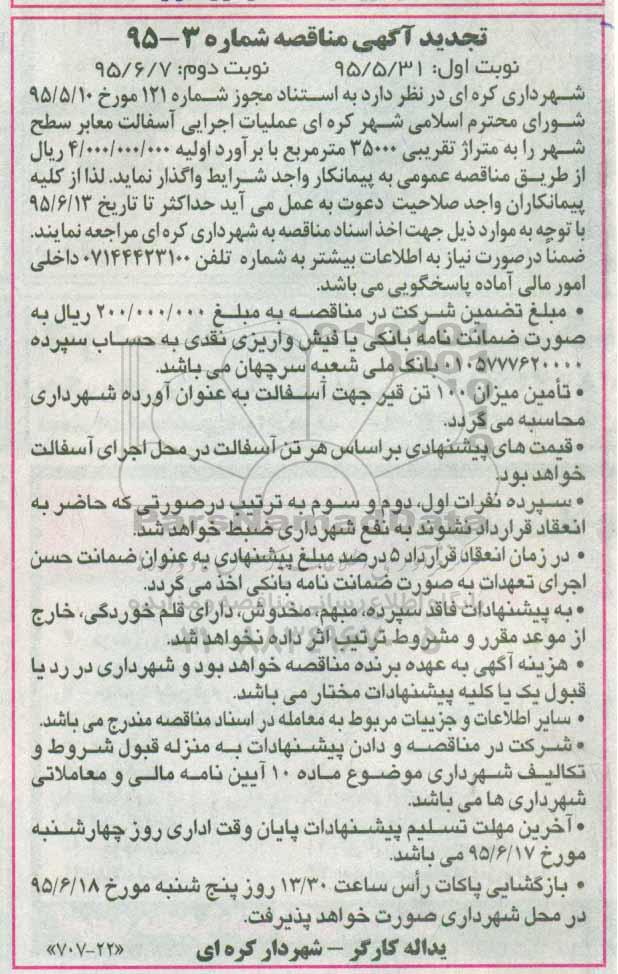 تجدید آگهی مناقصه شماره ۳-۹۵
نوبت اول: ۹۵/۵/۳۱ نوبت دوم: ۹۵/۶/۷
شهرداری کره ای در نظر دارد به استناد مجوز شماره ۱۲۱ مورخ ۹۵/۵/۱۰
شورای محترم اسلامی شهر کره ای عملیات اجرایی آسفالت معابر سطح
شهر را به متراژ تقریبی ۳۵۰۰۰ مترمربع با برآورد اولیه ۴/۰۰۰/۰۰۰/۰۰۰ ریال
از طریق مناقصه عمومی به پیمانکار واجد شرایط واگذار نماید. لذا از کلیه
پیمانکاران واجد صلاحیت دعوت به عمل می آید حداکثر تا تاریخ ۹۵/۶/۱۳
با توجه به موارد ذیل جهت اخذ اسناد مناقصه به شهرداری کره ای مراجعه نمایند.
ضمناً درصورت نیاز به اطلاعات بیشتر به شماره تلفن ۰۷۱۴۴۴۲۳۱۰۰ داخلی
امور مالی آماده پاسخگویی می باشد.
• مبلغ تضمین شرکت در مناقصه به مبلغ ۲۰۰/۰۰۰/۰۰۰ ریال به
صورت ضمانت نامه بانکی یا فیش واریزی نقدی به حساب سپرده
۰۱۰۵۷۷۷۶۲۰۰۰۰ بانک ملی شعبه سرچهان می باشد.
• تأمین میزان ۱۰۰ تن قیر جهت آسفالت به عنوان آورده شهرداری
محاسبه می گردد.
• قیمت های پیشنهادی براساس هر تن آسفالت در محل اجرای آسفالت
خواهد بود.
• سپرده نفرات اول، دوم و سوم به ترتیب درصورتی که حاضر به
انعقاد قرارداد نشوند به نفع شهرداری ضبط خواهد شد.
• در زمان انعقاد قرارداد ۵ درصد مبلغ پیشنهادی به عنوان ضمانت حسن
اجرای تعهدات به صورت ضمانت نامه بانکی اخذ می گردد.
• به پیشنهادات فاقد سپرده، مبهم، مخدوش، دارای قلم خوردگی، خارج
از موعد مقرر و مشروط ترتیب اثر داده نخواهد شد.
• هزینه آگهی به عهده برنده مناقصه خواهد بود و شهرداری در رد یا
قبول یک یا کلیه پیشنهادات مختار می باشد.
• سایر اطلاعات و جزییات مربوط به معامله در اسناد مناقصه مندرج می باشد.
• شرکت در مناقصه و دادن پیشنهادات به منزله قبول شروط و
تکالیف شهرداری موضوع ماده ۱۰ آیین نامه مالی و معاملاتی
شهرداری ها می باشد.
• آخرین مهلت تسلیم پیشنهادات پایان وقت اداری روز چهارشنبه
مورخ ۹۵/۶/۱۷ می باشد.
• بازگشایی پاکات رأس ساعت ۱۳/۳۰ روز پنج شنبه مورخ ۹۵/۶/۱۸
در محل شهرداری صورت خواهد پذیرفت.
یداله کارگر – شهردار کره ای «۷۰۷-۲۲»